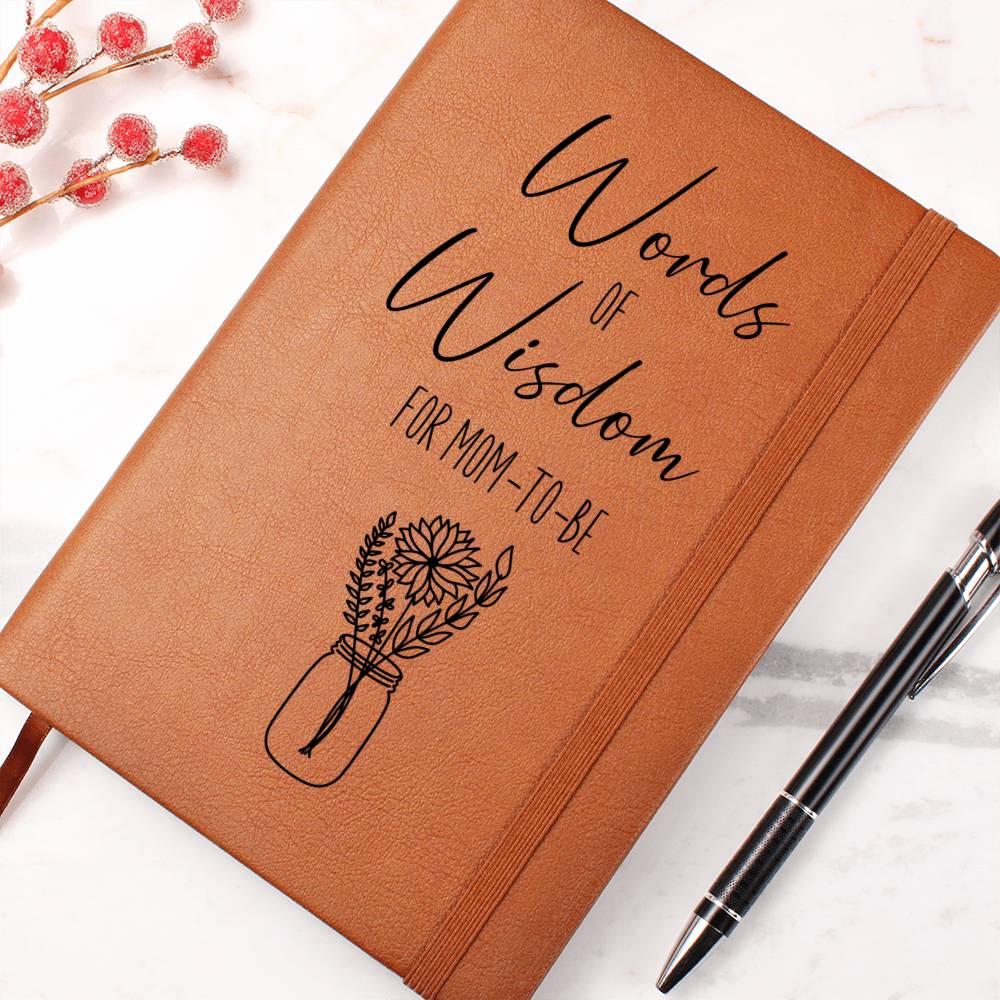 Words
OF
Wisdom
FOR MOM-TO-BE